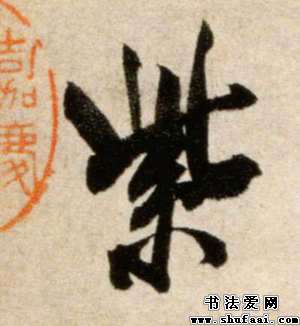 紫
嘉慶
书法爱网
www.shufaai.com